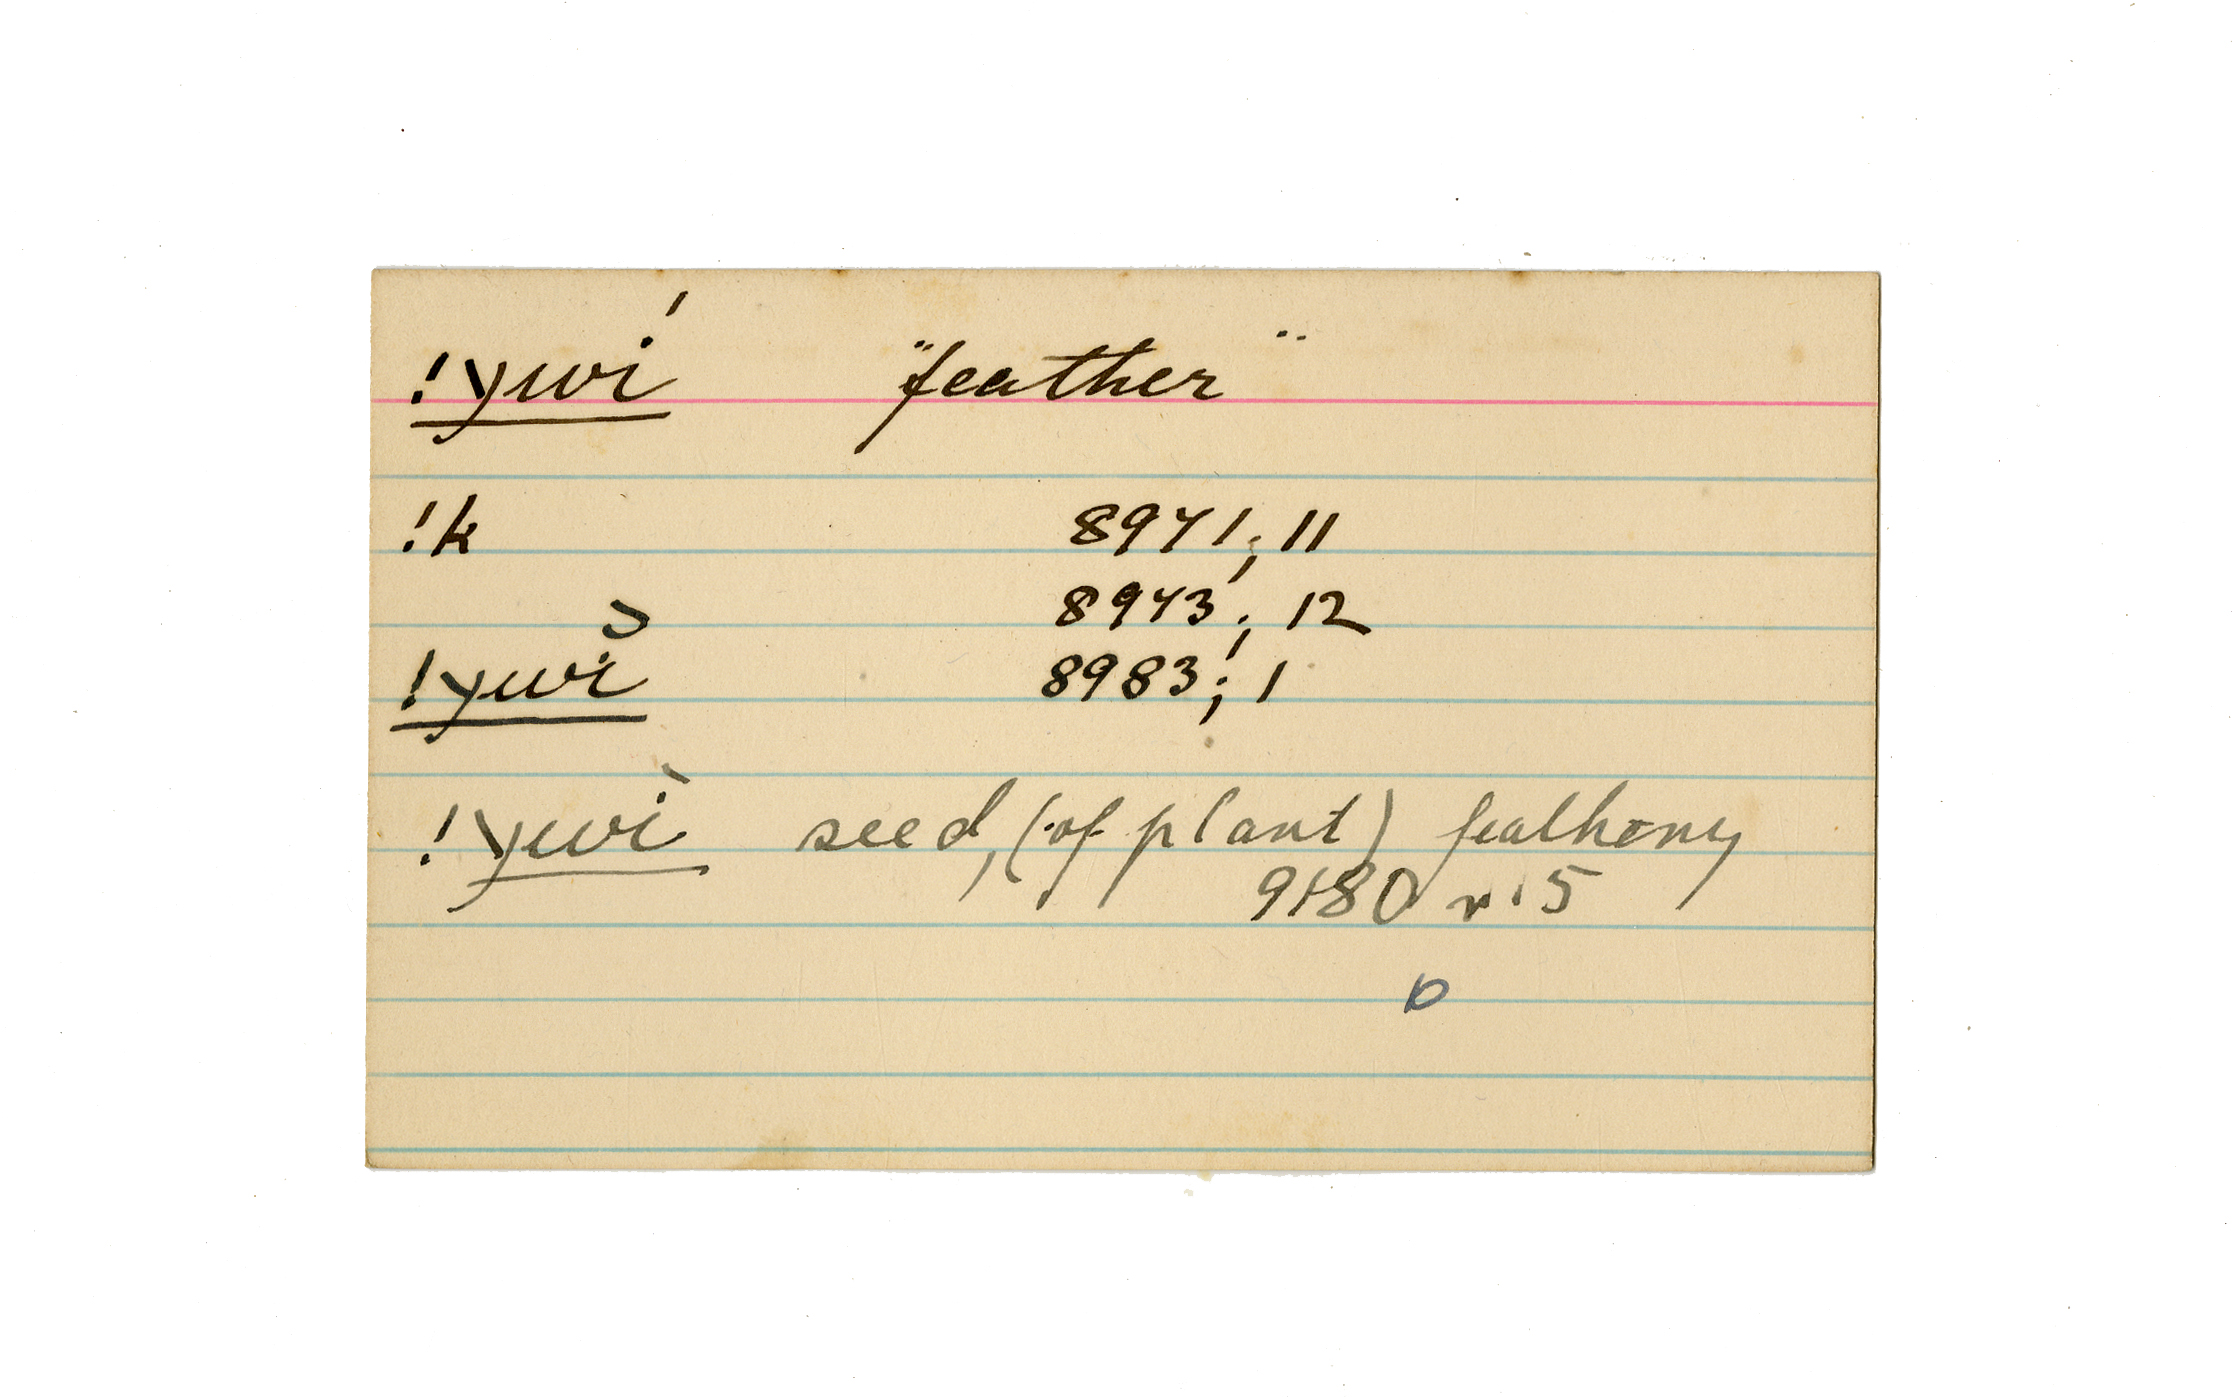 !ywí "feather"
!k 8971; 11
8973; 12
!ywi 8983; 1
!ywì seed, (of plant) feathery
9180 r. 5